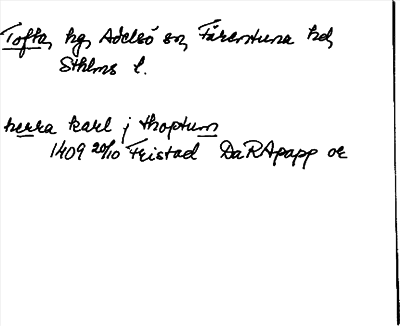 Tofta, kg, Adelsö sn, Färentuna hd,
Sthlms l.
herra karl j thoptum
1409 20/10 Fristad DaRApapp or